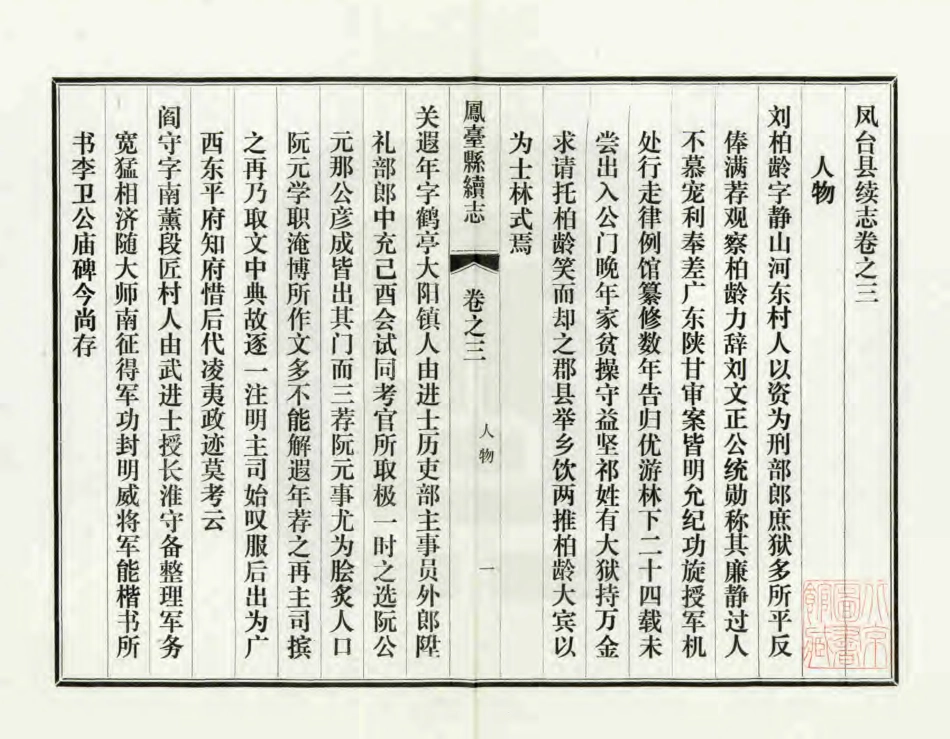 凤台县续志卷之三
人物
刘柏龄字静山河东村人以资为刑部郎庶狱多所平反
俸满荐观察柏龄力辞刘文正公统勋称其廉静过人
不慕宠利奉差广东陕甘审案皆明允纪功旋授军机
处行走律例馆纂修数年告归优游林下二十四载未
尝出入公门晚年家贫操守益坚祁姓有大狱持万金
求请托柏龄笑而却之郡县举乡饮两推柏龄大宾以
为士林式焉
鳳臺縣續志 卷之三 人物 一
关遐年字鹤亭大阳镇人由进士历吏部主事员外郎陞
礼部郎中充己酉会试同考官所取极一时之选阮公
元那公彦成皆出其门而三荐阮元事尤为脍炙人口
阮元学职淹博所作文多不能解遐年荐之再主司摈
之再乃取文中典故逐一注明主司始叹服后出为广
西东平府知府惜后代凌夷政迹莫考云
阎守字南薰段匠村人由武进士授长淮守备整理军务
宽猛相济随大师南征得军功封明威将军能楷书所
书李卫公庙碑今尚存
北京
圖書
館藏